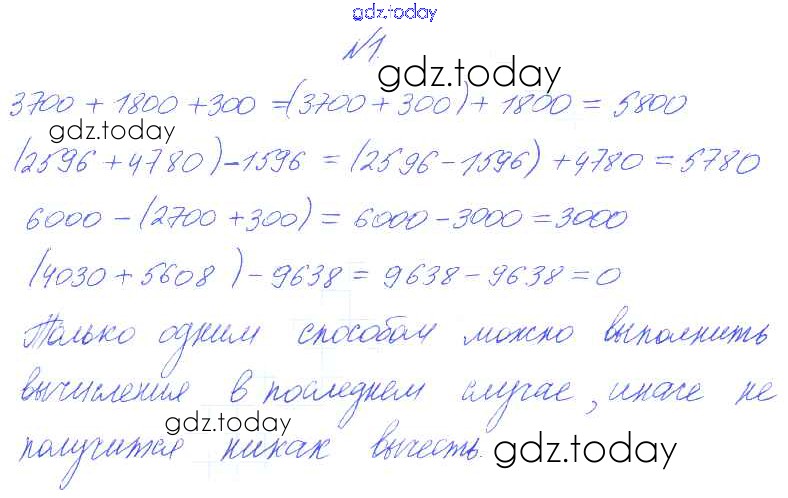 gdz.today
№1.
gdz.today
3700 + 1800 + 300 = (3700 + 300) + 1800 = 5800
gdz.today
(2596 + 4780) - 1596 = (2596 - 1596) + 4780 = 5780
6000 - (2700 + 300) = 6000 - 3000 = 3000
(4030 + 5608) - 9638 = 9638 - 9638 = 0
Только одним способом можно выполнить
вычисления в последнем случае, иначе не
gdz.today
получится никак вычесть.
gdz.today